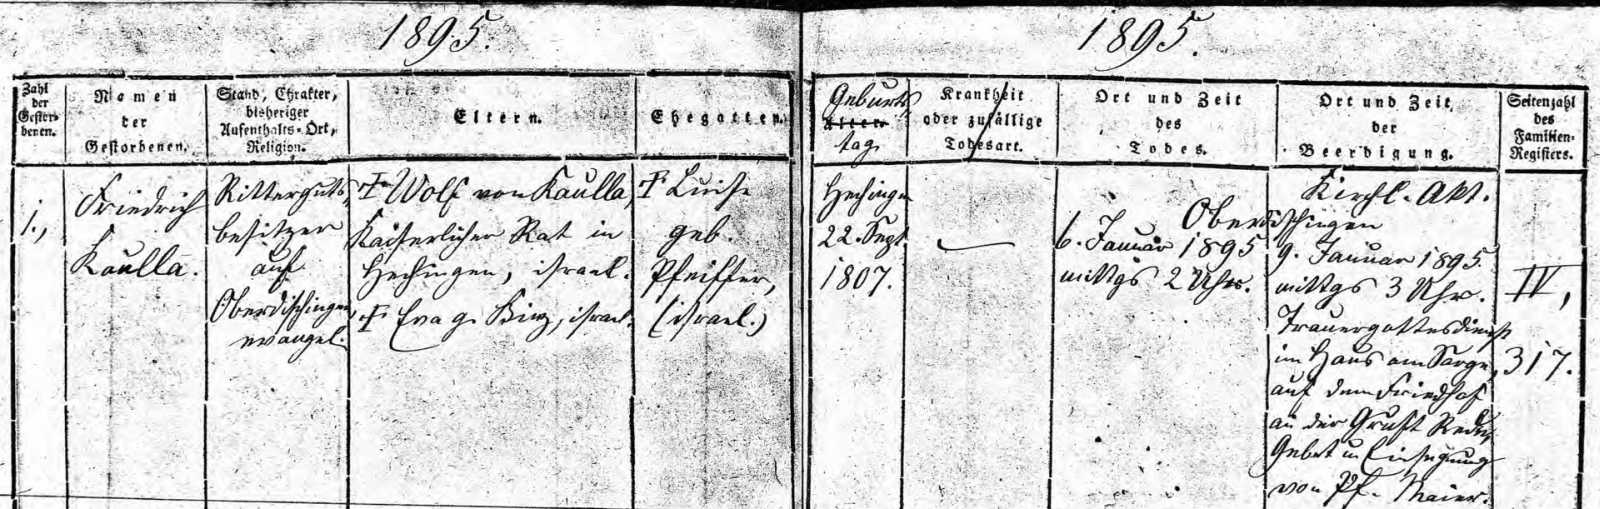 1895.
1895.
Zahl
der
Gestor-
benen.
Namen
der
Gestorbenen.
Stand, Charakter,
bisheriger
Aufenthalts-Ort,
Religion.
Eltern.
Ehegatten.
Geburts
Alter.
tag.
Krankheit
oder zufällige
Todesart.
Ort und Zeit
des
Todes.
Ort und Zeit
der
Beerdigung.
Seitenzahl
des
Familien-
Registers.
1.,
Friedrich
Kaulla.
Ritterguts-
besitzer
auf
Oberdischingen,
evangel.
† Wolf von Kaulla,
Kaiserlicher Rat in
Hechingen, israel.
† Eva g. , israel.
† Luise
geb.
Pfeiffer,
(israel.)
Hechingen
22. Sept
1807.
—
Oberdischingen
6. Januar 1895
mittgs 2 Uhr.
Kirchl. Akt.
9. Januar 1895
mittgs 3 Uhr.
Trauergottesdienst
im Haus am Sarge,
auf dem Friedhof
an der Gruft Rede,
Gebet u Einsegnung
von Pf. Maier.
IV,
317.